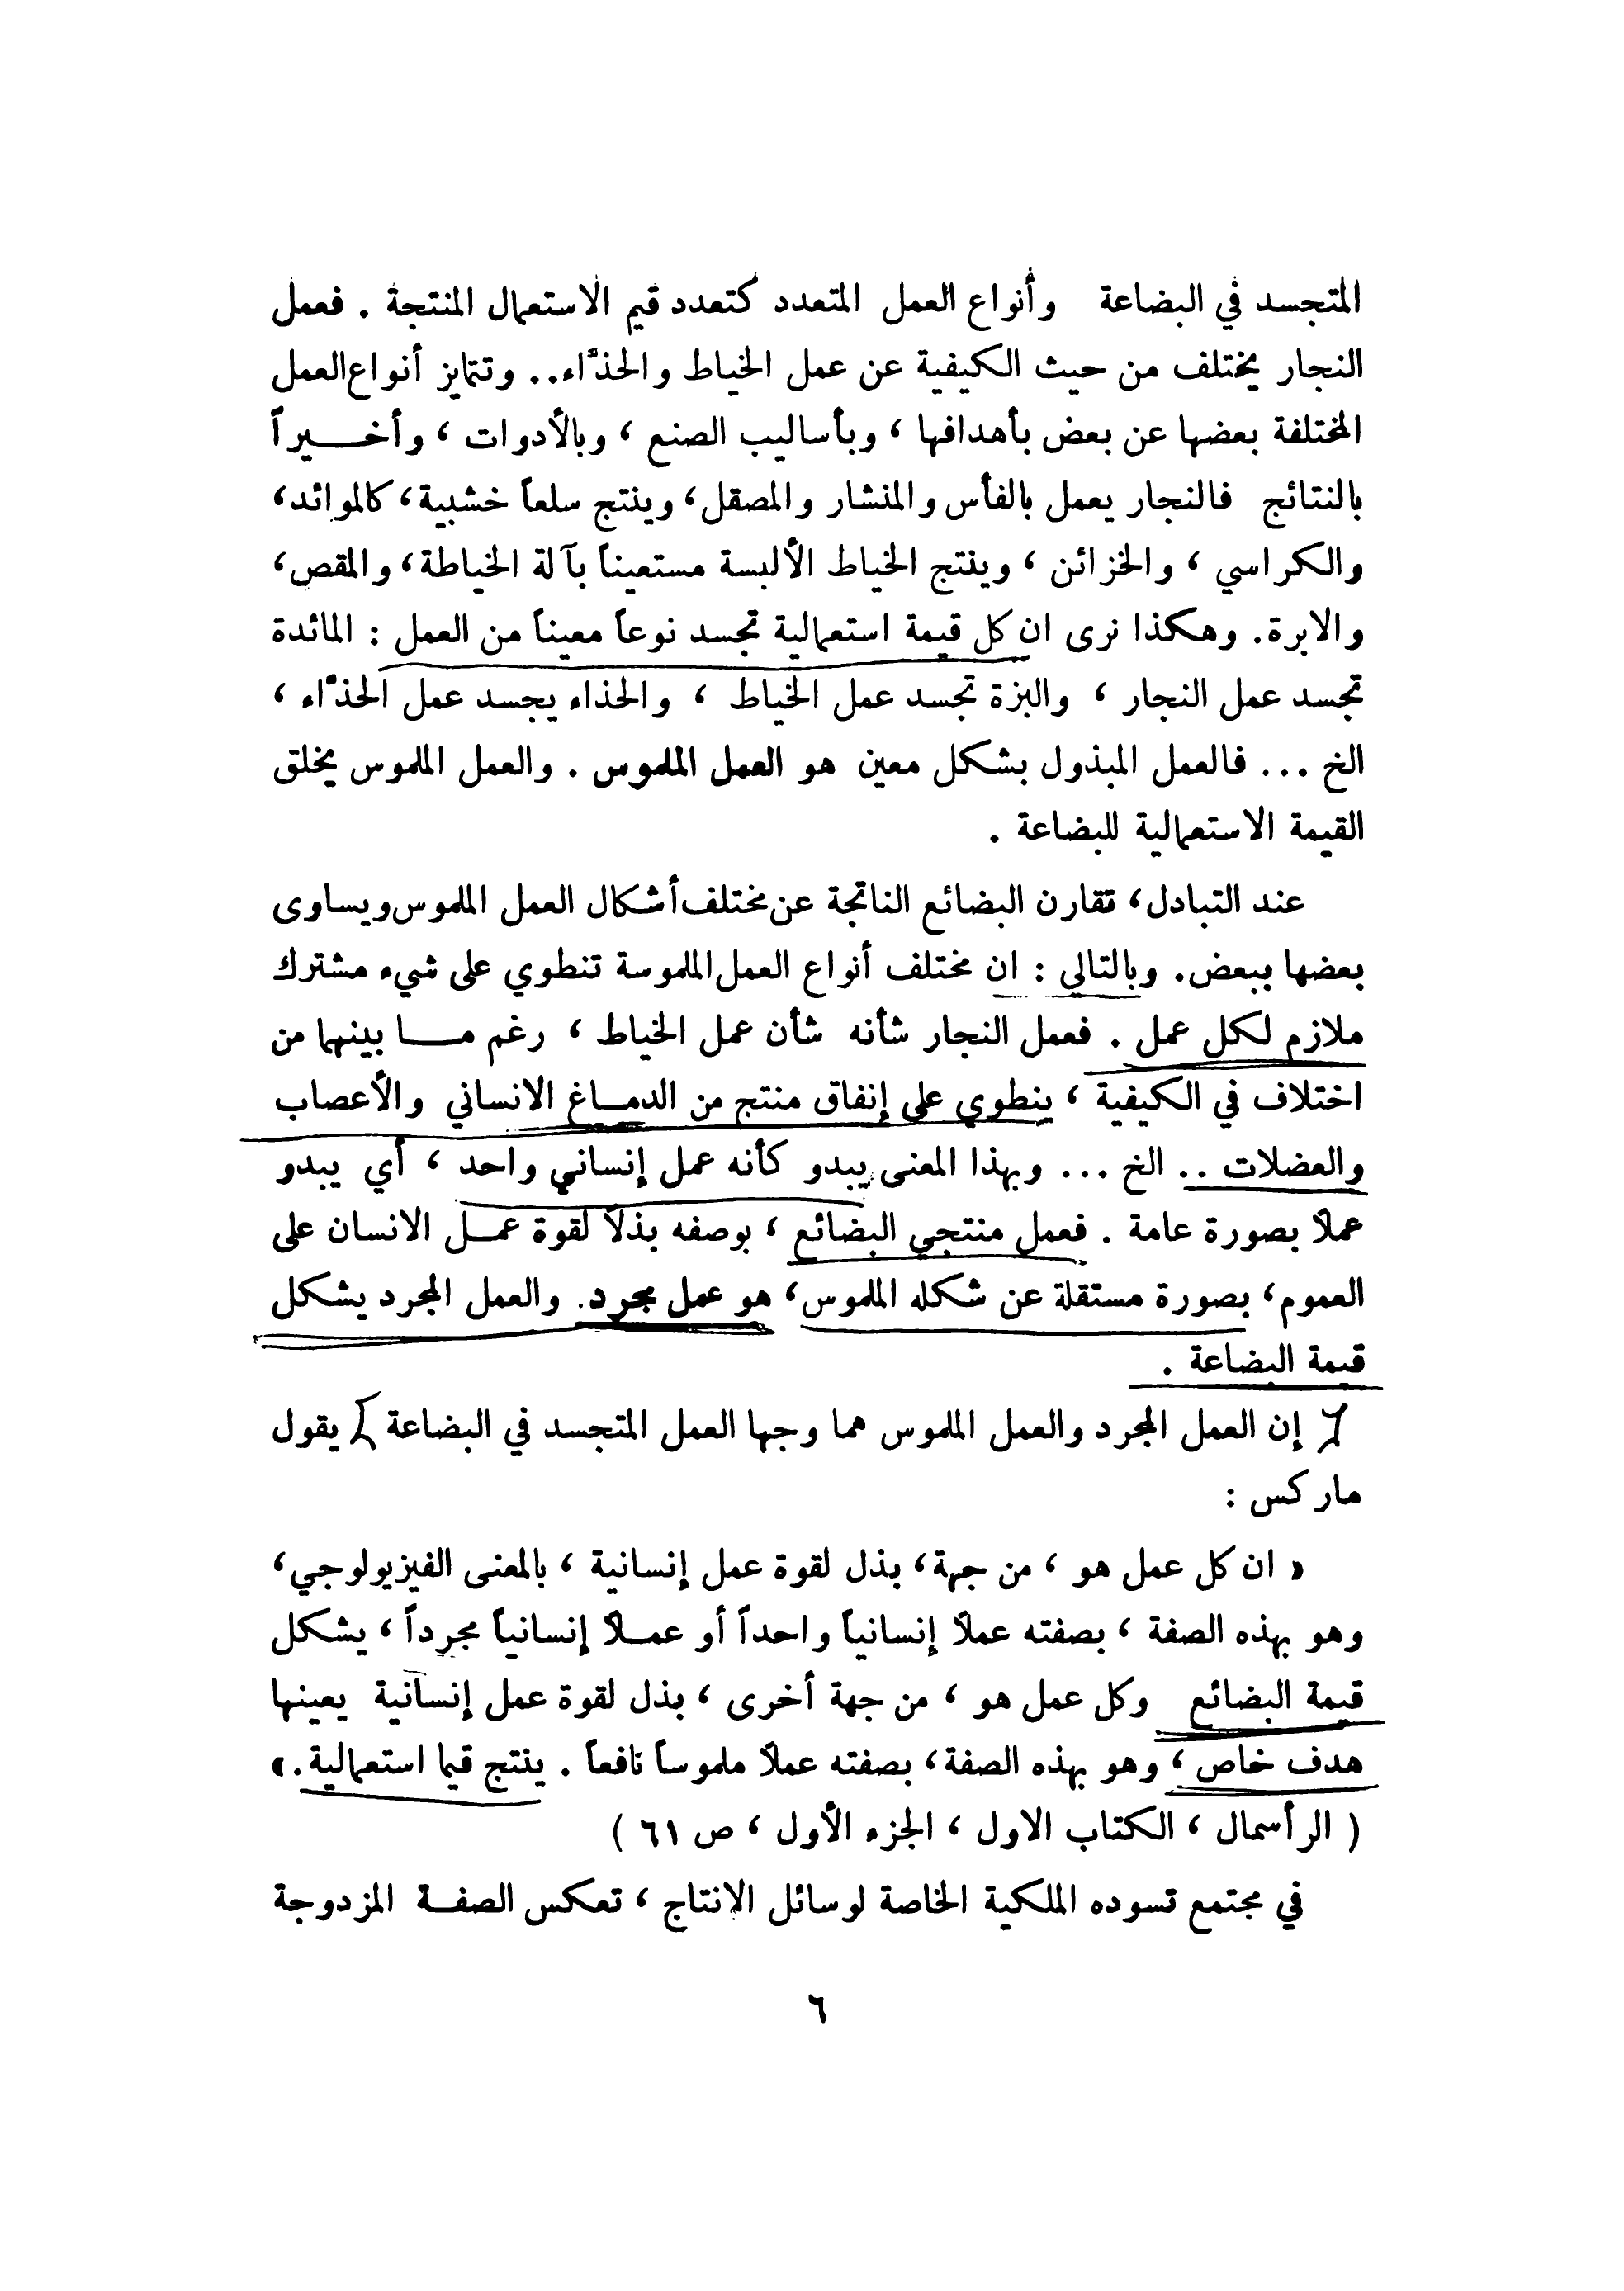 المتجسد في البضاعة وأنواع العمل المتعدد كتعدد قيم الاستعمال المنتجة . فعمل
النجار يختلف من حيث الكيفية عن عمل الخياط والحذّاء.. وتتمايز أنواع العمل
المختلفة بعضها عن بعض بأهدافها ، وبأساليب الصنع ، وبالأدوات ، وأخيراً
بالنتائج فالنجار يعمل بالفأس والمنشار والمصقل، وينتج سلعاً خشبية، كالموائد،
والكراسي ، والخزائن ، وينتج الخياط الألبسة مستعيناً بآلة الخياطة، والمقص،
والابرة. وهكذا نرى ان كل قيمة استعمالية تجسد نوعاً معيناً من العمل : المائدة
تجسد عمل النجار ، والبزة تجسد عمل الخياط ، والحذاء يجسد عمل الحذّاء ،
الخ ... فالعمل المبذول بشكل معين هو العمل الملموس . والعمل الملموس يخلق
القيمة الاستعمالية للبضاعة .
عند التبادل، تقارن البضائع الناتجة عن مختلف أشكال العمل الملموس ويساوى
بعضها ببعض. وبالتالي : ان مختلف أنواع العمل الملموسة تنطوي على شيء مشترك
ملازم لكل عمل . فعمل النجار شأنه شأن عمل الخياط ، رغم ما بينهما من
اختلاف في الكيفية ، ينطوي على إنفاق منتج من الدماغ الانساني والأعصاب
والعضلات .. الخ ... وبهذا المعنى يبدو كأنه عمل إنساني واحد ، أي يبدو
عملاً بصورة عامة . فعمل منتجي البضائع ، بوصفه بذلاً لقوة عمل الانسان على
العموم، بصورة مستقلة عن شكله الملموس، هو عمل مجرد. والعمل المجرد يشكل
قيمة البضاعة .
إن العمل المجرد والعمل الملموس هما وجها العمل المتجسد في البضاعة يقول
ماركس :
« ان كل عمل هو ، من جهة، بذل لقوة عمل إنسانية ، بالمعنى الفيزيولوجي،
وهو بهذه الصفة ، بصفته عملاً إنسانياً واحداً أو عملاً إنسانياً مجرداً ، يشكل
قيمة البضائع وكل عمل هو ، من جهة أخرى ، بذل لقوة عمل إنسانية يعينها
هدف خاص ، وهو بهذه الصفة، بصفته عملاً ملموساً نافعاً . ينتج قيما استعمالية. »
( الرأسمال ، الكتاب الاول ، الجزء الأول ، ص ٦١ )
في مجتمع تسوده الملكية الخاصة لوسائل الانتاج ، تعكس الصفة المزدوجة
٦